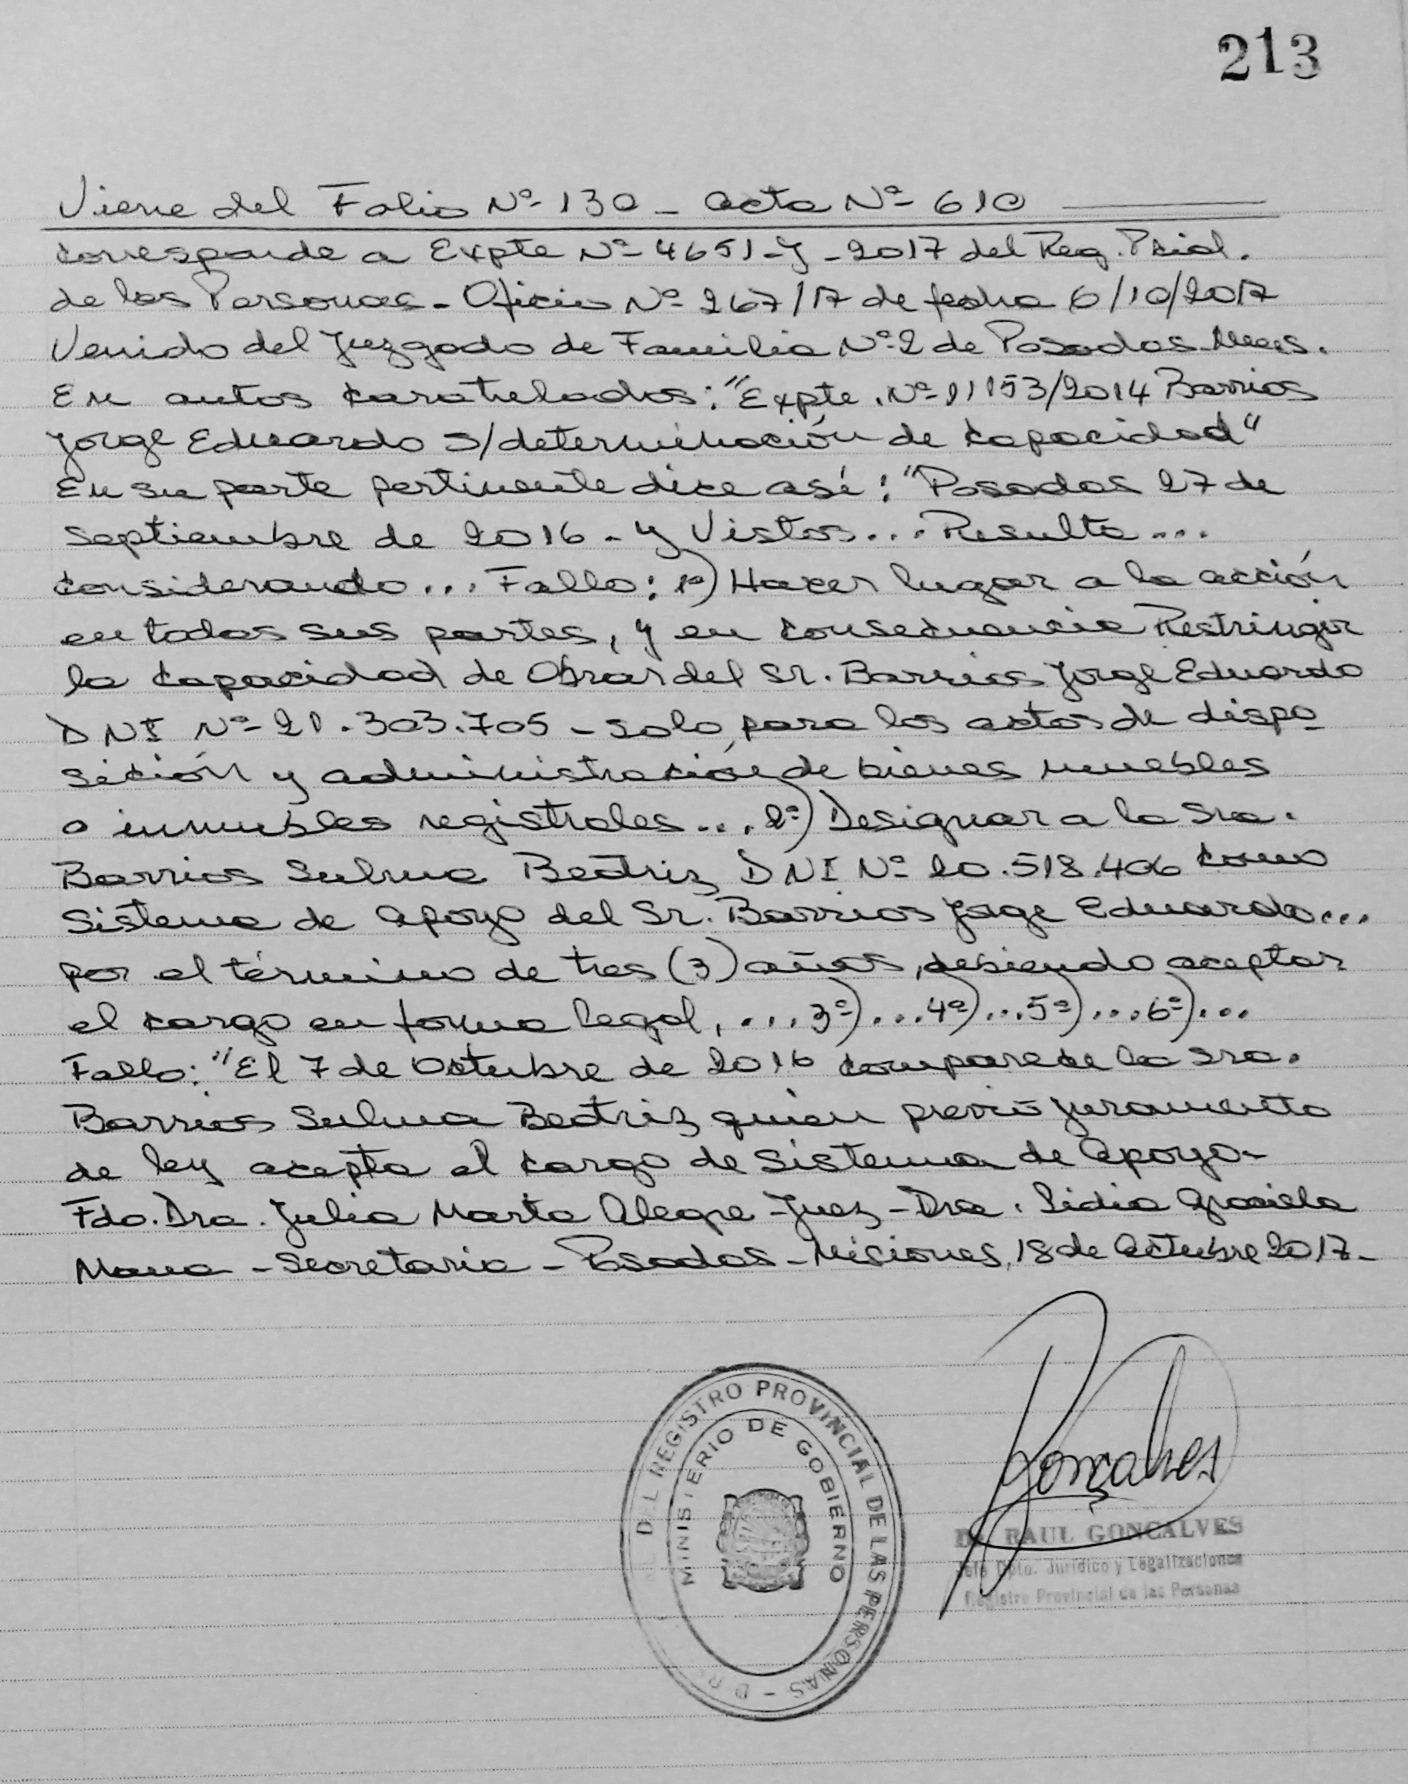 213
Viene del Folio Nº 130 - acta Nº 610
corresponde a Expte Nº 4651-J-2017 del Reg. Pcial.
de las Personas - Oficio Nº 267/17 de fecha 6/10/2017
Venido del Juzgado de Familia Nº 2 de Posadas Mnes.
En autos caratulados: "Expte. Nº 11153/2014 Barrios
Jorge Eduardo S/determinación de capacidad"
En su parte pertinente dice así: "Posadas 27 de
septiembre de 2016 - y Vistos... Resulta...
considerando... Fallo: 1º) Hacer lugar a la acción
en todas sus partes, y en consecuencia Restringir
la capacidad de Obrar del Sr. Barrios Jorge Eduardo
DNI Nº 21.303.705 - solo para los actos de dispo-
sición y administración de bienes muebles
o inmuebles registrales... 2º) Designar a la Sra.
Barrios Sulma Beatriz DNI Nº 20.518.406 como
Sistema de apoyo del Sr. Barrios Jorge Eduardo...
por el término de tres (3) años, debiendo aceptar
el cargo en forma legal, ... 3º)... 4º)... 5º)... 6º)...
Fallo: "El 7 de Octubre de 2016 comparece la Sra.
Barrios Sulma Beatriz quien previo juramento
de ley acepta el cargo de Sistema de apoyo-
Fdo. Dra. Julia Marta Alegre - Juez - Dra. Lidia Graciela
- Secretaria - Posadas - Misiones, 18 de Octubre 2017-
Gonçalves
Dr. RAUL GONCALVES
Jefe Dpto. Jurídico y Legalizaciones
Registro Provincial de las Personas
DEL REGISTRO PROVINCIAL DE LAS PERSONAS -
MINISTERIO DE GOBIERNO